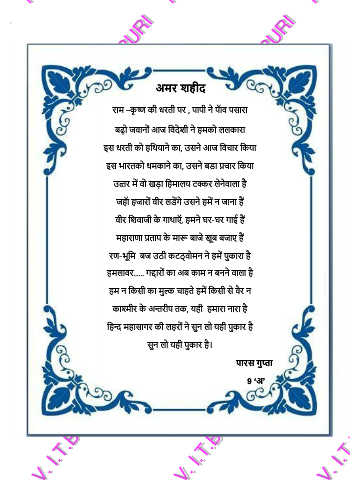 अमर शहीद
राम –कृष्ण की धरती पर , पापी ने पॉव पसारा
बढ़ो जवानों आज विदेशी ने हमको ललकारा
इस धरती को हथियाने का, उसने आज विचार किया
इस भारतको धमकाने का, उसने बडा प्रचार किया
उत्तर में वो खड़ा हिमालय टक्कर लेनेवाला है
जहाँ हजारों वीर लडेंगे उसने हमें न जाना हैं
वीर शिवाजी के गाथाएँ, हमने घर-घर गाई हैं
महाराणा प्रताप के मारू बाजे खूब बजाए हैं
रण-भूमि बज उठी हमें पुकारा है
हमलावर..... गद्दारों का अब काम न बनने वाला है
हम न किसी का मुल्क चाहते हमें किसी से वैर न
काश्मीर के अन्तरीप तक, यही हमारा नारा है
हिन्द महासागर की लहरों ने सुन लो यही पुकार है
सुन लो यही पुकार है।
पारस गुप्ता
9 ‘अ’
PURI
PURI
V. I.T.B
V. I.T.B
V. I.T.